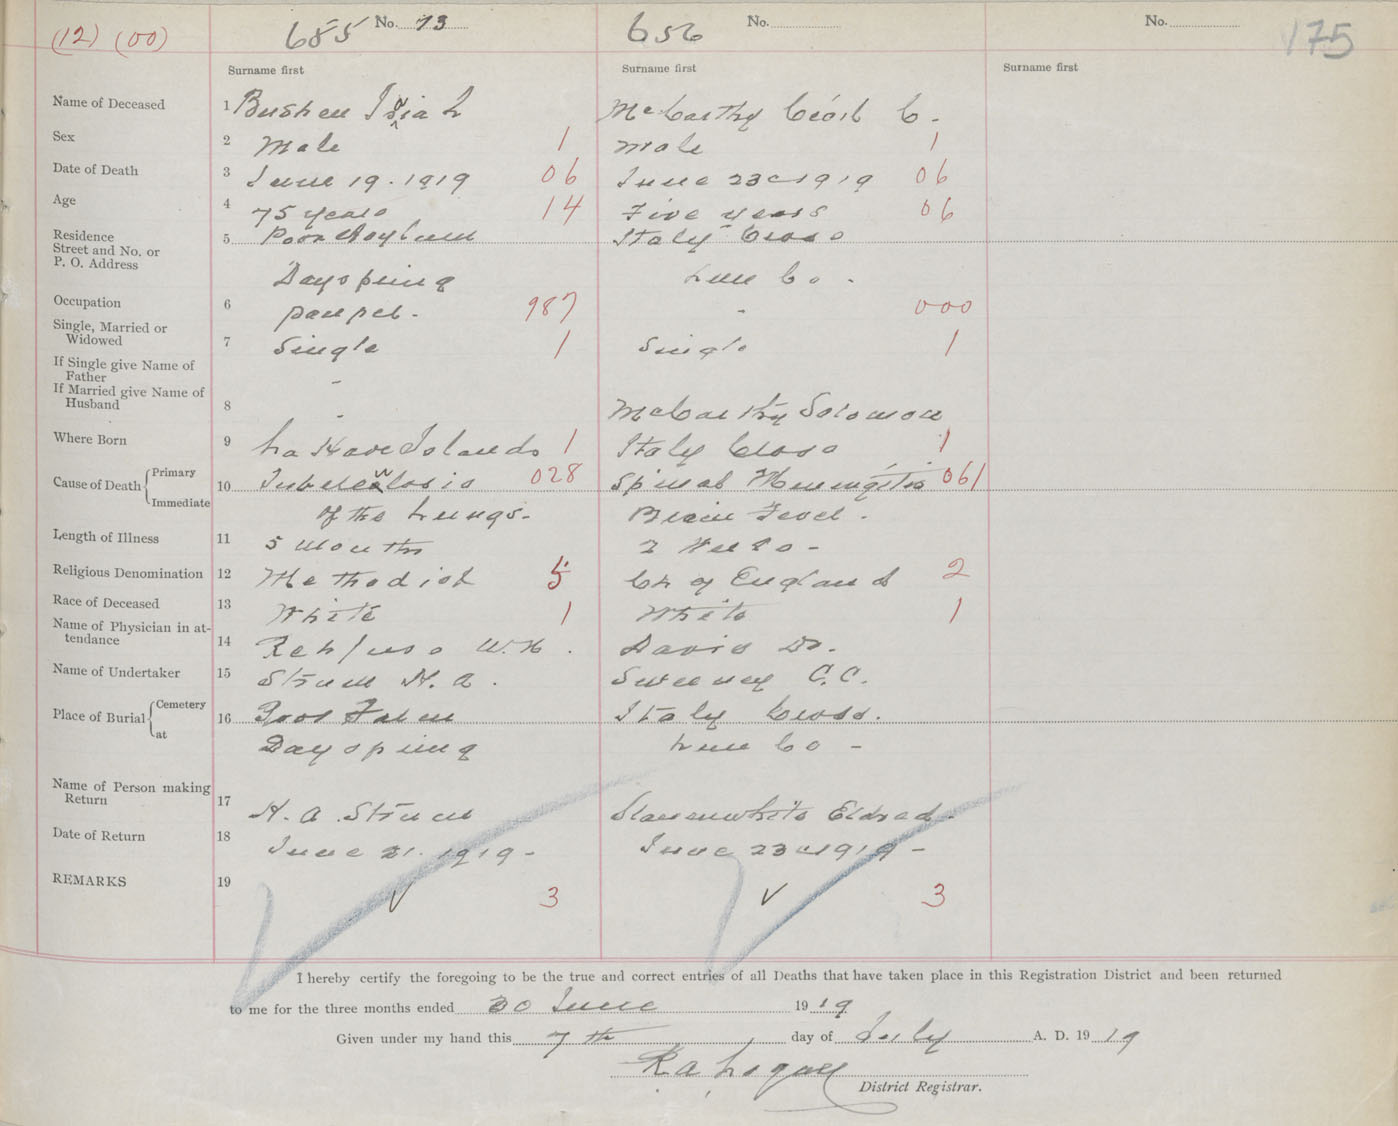 (12) (00)
685 No. 73
656 No.
No. 175
Surname first Surname first Surname first
Name of Deceased 1 Bushen Isaiah McCarthy Cecil C.
Sex 2 Male 1 Male 1
Date of Death 3 June 19. 1919 06 June 23d 1919 06
Age 4 75 years 14 Five years 06
Residence
Street and No. or
P. O. Address
5 Poor Asylum Italy Cross
Dayspring Lun Co.
Occupation 6 pauper. 987 - 000
Single, Married or
Widowed
7 Single 1 Single 1
If Single give Name of
Father
-
If Married give Name of
Husband
8 - McCarthy Solomon
Where Born 9 La Have Islands 1 Italy Cross 1
Cause of Death Primary
Immediate
10 Tuberculosis 028 Spinal Meningitis 061
of the Lungs. Brain Fever.
Length of Illness 11 5 months 2 Weeks -
Religious Denomination 12 Methodist 5 Ch of England 2
Race of Deceased 13 White 1 White 1
Name of Physician in at-
tendance
14 Rehfuss W. H. Davis Dr.
Name of Undertaker 15 Strum H. A. Sweeney C. C.
Place of Burial Cemetery
at
16 Poor Farm Italy Cross.
Dayspring Lun Co -
Name of Person making
Return
17 H. A. Strum Slauenwhite Eldred.
Date of Return 18 June 21. 1919 - June 23d 1919 -
REMARKS 19 3 3
I hereby certify the foregoing to be the true and correct entries of all Deaths that have taken place in this Registration District and been returned
to me for the three months ended 30 June 1919
Given under my hand this 7th day of July A. D. 1919
R. A. Logan
District Registrar.